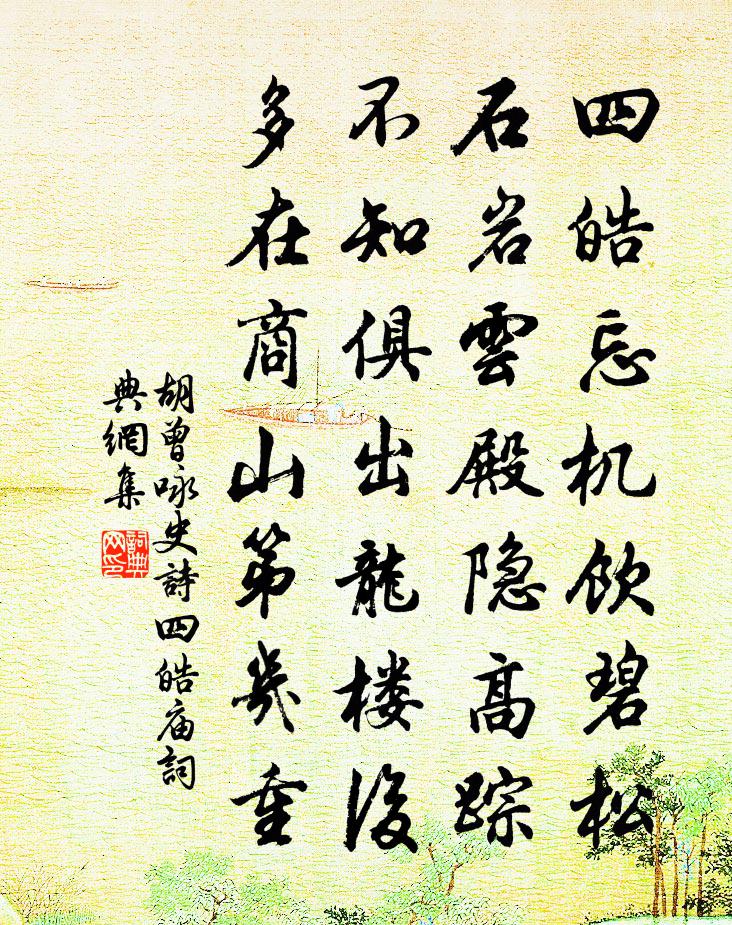 四皓忘机饮碧松
石岩雲殿隐高踪
不知俱出龍楼後
多在商山第幾重
胡曾咏史詩四皓庙詞
典網集
詞典
网印